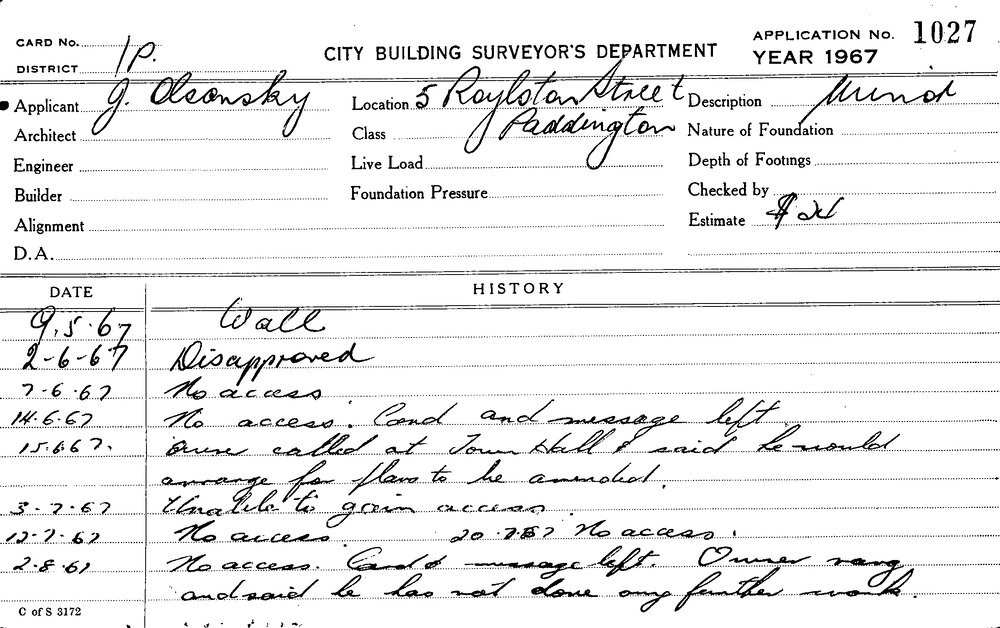 CARD No. 1P. CITY BUILDING SURVEYOR'S DEPARTMENT APPLICATION No. 1027
DISTRICT YEAR 1967
Applicant J. Olsansky Location 5 Roylston Street Description Minor
Architect Class Paddington Nature of Foundation
Engineer Live Load Depth of Footings
Builder Foundation Pressure Checked by
Alignment Estimate $24
D.A.
DATE HISTORY
9.5.67 Wall
2-6-67 Disapproved
7-6-67 No access.
14.6.67 No access. Card and message left.
15.6.67. Owner called at Town Hall & said he would
arrange for plans to be amended.
3-7-67 Unable to gain access.
12-7-67 No access. 20.7.67 No access.
2-8-67 No access. Card & message left. Owner rang
and said he has not done any further work.
C of S 3172